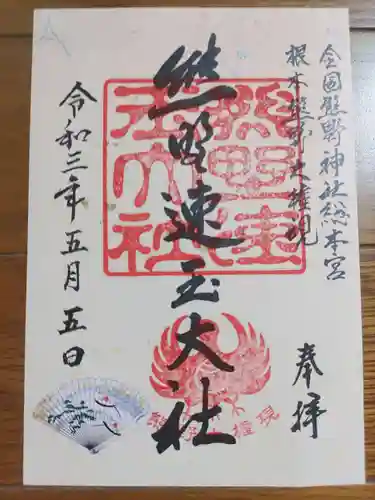 全国熊野神社総本宮
根本熊野大権現
奉拝
熊野速玉大社
令和三年五月五日
熊野速玉大社